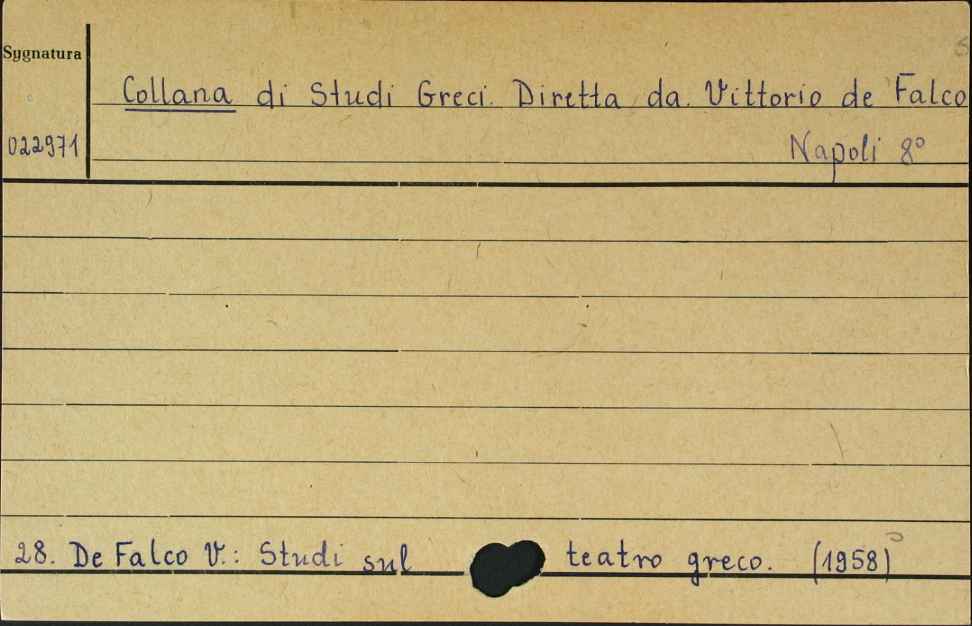 Sygnatura
Collana di Studi Greci. Diretta da. Vittorio de Falco
022971
Napoli 8°
28. De Falco V.: Studi sul teatro greco. (1958)